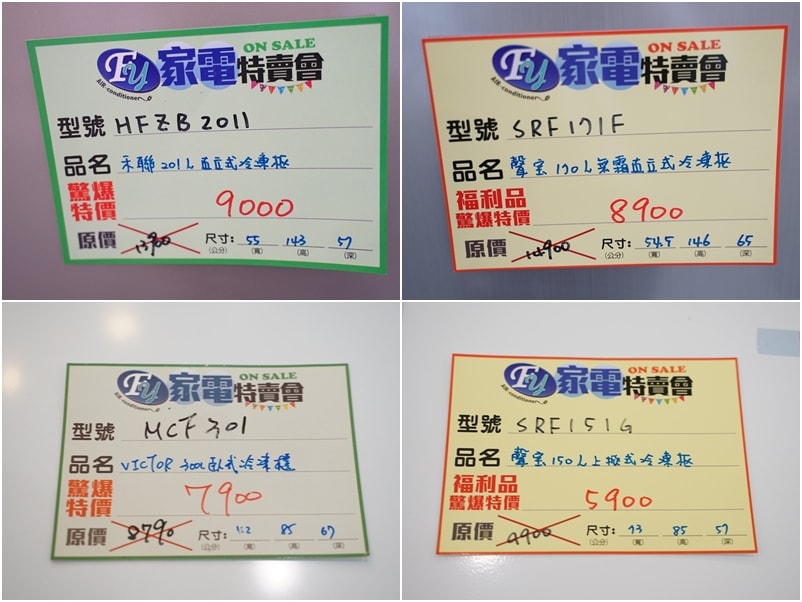 FY 家電特賣會 ON SALE
AIR-conditioner
型號 HFZB2011
品名 禾聯201L直立式冷凍櫃
驚爆特價 9000
原價 13900 尺寸:(公分) 55(寬) 143(高) 57(深)
FY 家電特賣會 ON SALE
AIR-conditioner
型號 SRF171F
品名 聲宝170L無霜直立式冷凍櫃
福利品
驚爆特價 8900
原價 14900 尺寸:(公分) 54.5(寬) 146(高) 65(深)
FY 家電特賣會 ON SALE
AIR-conditioner
型號 MCF301
品名 VICTOR 300L臥式冷凍櫃
驚爆特價 7900
原價 8790 尺寸:(公分) 112(寬) 85(高) 67(深)
FY 家電特賣會 ON SALE
AIR-conditioner
型號 SRF151G
品名 聲宝150L上掀式冷凍櫃
福利品
驚爆特價 5900
原價 9900 尺寸:(公分) 73(寬) 85(高) 57(深)